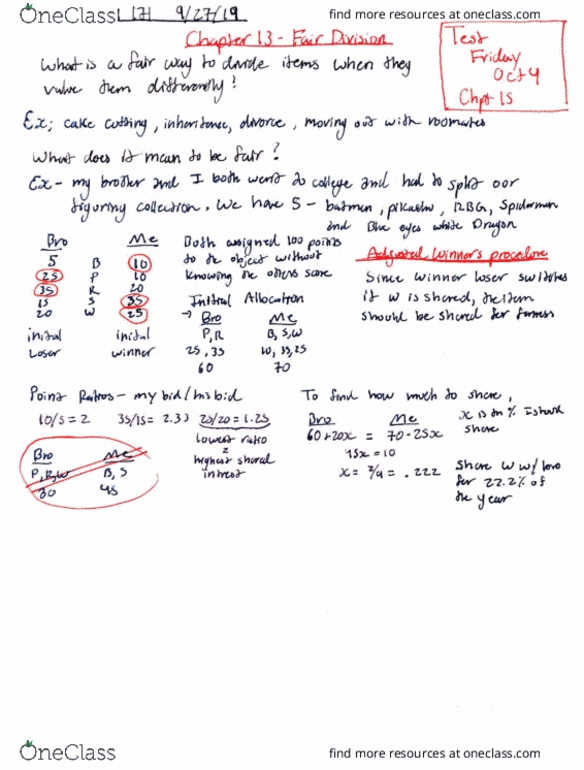 OneClass 171 9/27/19
find more resources at oneclass.com
Chapter 13 - Fair Division
Test
Friday
Oct 4
Chpt 15
What is a fair way to divide items when they
value them differently?
Ex; cake cutting, inheritance, divorce, moving out with roomates
What does it mean to be fair?
Ex - my brother and I both went to college and had to split our
figuring collection. We have 5 - batmen, pikachu, RBG, Spiderman
and Blue eyes white Dragon
Bro Me
5 B 10
25 P 10
35 R 20
15 S 35
20 W 25
initial initial
Loser winner
Both assigned 100 points
to the object without
knowing the others score
Initial Allocation
→ Bro Me
P,R B,S,W
25,35 10,35,25
60 70
Adjusted Winners procedure
Since winner loser switches
if w is shared, the item
should be shared for fairness
Point Ratios - my bid / his bid
10/5 = 2 35/15 = 2.33 25/20 = 1.25
lowest ratio
=
highest shared
interest
Bro Me
P,R,W B,S
80 45
To find how much to share,
Bro Me
60+20x = 70-25x
x is the % I should
share
45x = 10
x = 2/9 = .222
Share W w/ bro
for 22.2% of
the year
OneClass
find more resources at oneclass.com